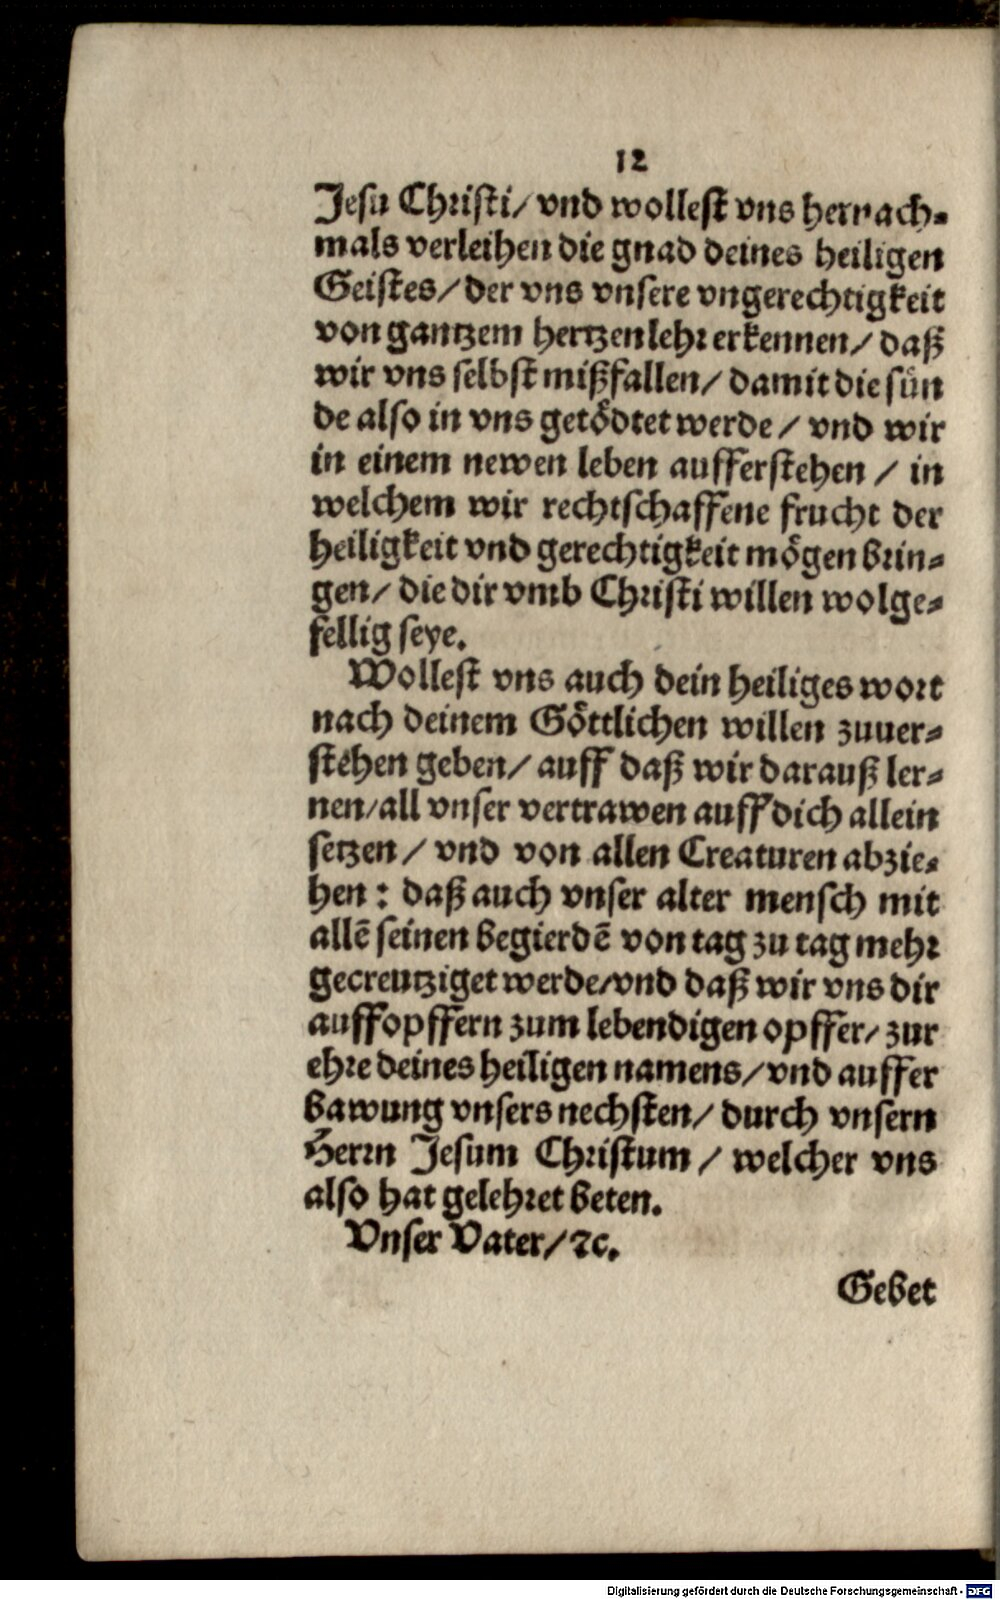 12
Jesu Christi/ vnd wollest vns hernach-
mals verleihen die gnad deines heiligen
Geistes/ der vns vnsere vngerechtigkeit
von gantzem hertzen lehr erkennen/ daß
wir vns selbst mißfallen/ damit die sün
de also in vns getödtet werde/ vnd wir
in einem newen leben aufferstehen/ in
welchem wir rechtschaffene frucht der
heiligkeit vnd gerechtigkeit mögen brin-
gen/ die dir vmb Christi willen wolge-
fellig seye.
Wollest vns auch dein heiliges wort
nach deinem Göttlichen willen zuuer-
stehen geben/ auff daß wir darauß ler-
nen/ all vnser vertrawen auff dich allein
setzen/ vnd von allen Creaturen abzie-
hen: daß auch vnser alter mensch mit
allẽ seinen begierdẽ von tag zu tag mehr
gecreutziget werde/ vnd daß wir vns dir
auffopffern zum lebendigen opffer/ zur
ehre deines heiligen namens/ vnd auffer
bawung vnsers nechsten/ durch vnsern
Herrn Jesum Christum/ welcher vns
also hat gelehret beten.
Vnser Vater/ ꝛc.
Gebet
Digitalisierung gefördert durch die Deutsche Forschungsgemeinschaft - DFG